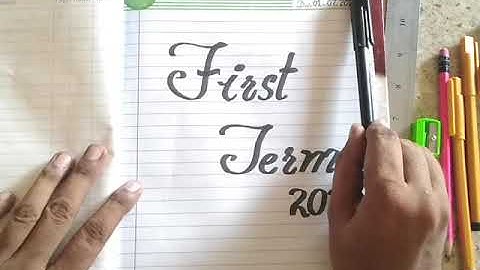 First
Term